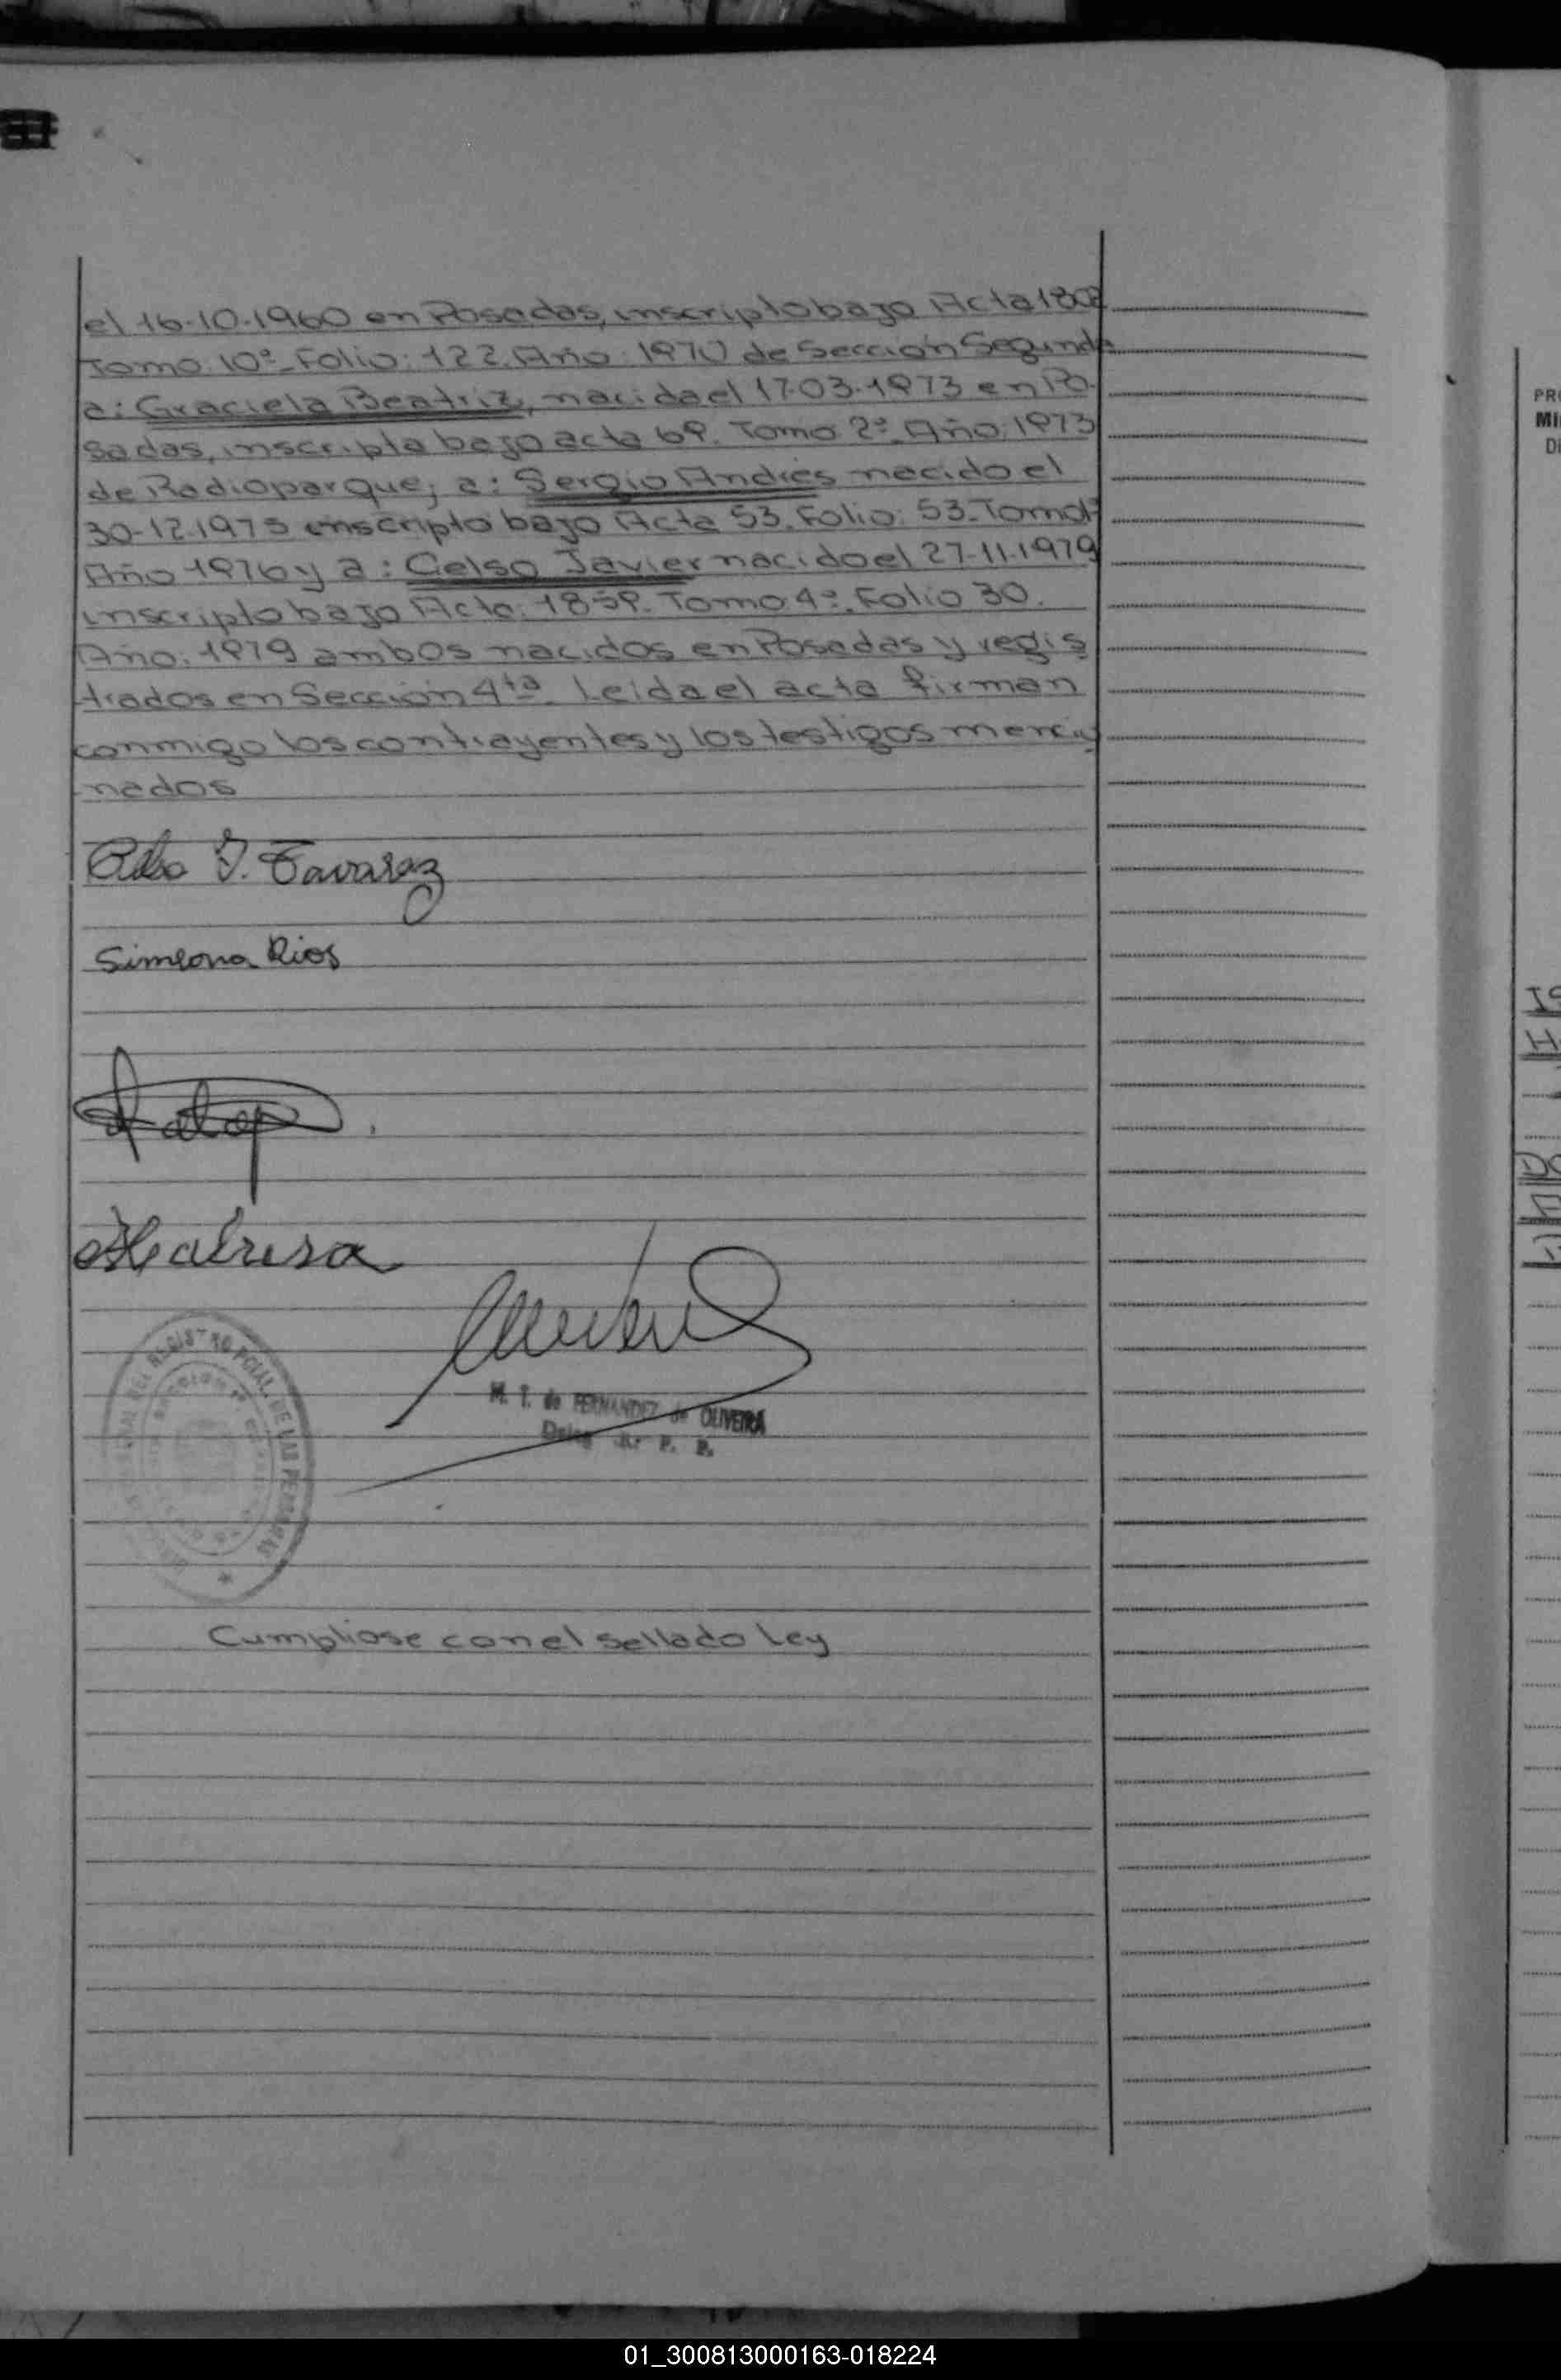 el 16-10-1960 en Posadas, inscripto bajo Acta 1808
Tomo: 10º- Folio: 122. Año: 1970 de Sección Segunda
a: Graciela Beatriz, nacida el 17-03-1973 en Po-
sadas, inscripta bajo acta 69. Tomo 2º. Año: 1973
de Radioparque; a: Sergio Andrés nacido el
30-12-1975 inscripto bajo Acta 53. Folio: 53. Tomo 1º
Año 1976 y a: Celso Javier nacido el 27-11-1979
inscripto bajo Acta: 1859. Tomo 4º. Folio 30.
Año: 1979 ambos nacidos en Posadas y regis
trados en Sección 4ta. Leida el acta firman
conmigo los contrayentes y los testigos mencio
nados
Celso J. Tavarez
Simeona Rios
M. T. de FERNANDEZ de OLIVEIRA
R. P. P.
REGISTRO PCIAL. DE LAS PERSONAS
Cumpliose con el sellado Ley
PR
MI
D
01_300813000163-018224